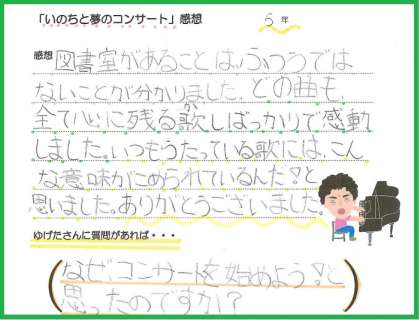 「いのちと夢のコンサート」感想
5 年
感想 図書室があることは、ふつうでは
ないことが分かりました。どの曲も、
全て心に残る歌しばっかりで感動
しました。いつもうたっている歌には、こん
な意味がこめられているんだ!と
思いました。ありがとうございました。
ゆげたさんに質問があれば・・・
なぜ、コンサートを始めよう!と
思ったのですか?